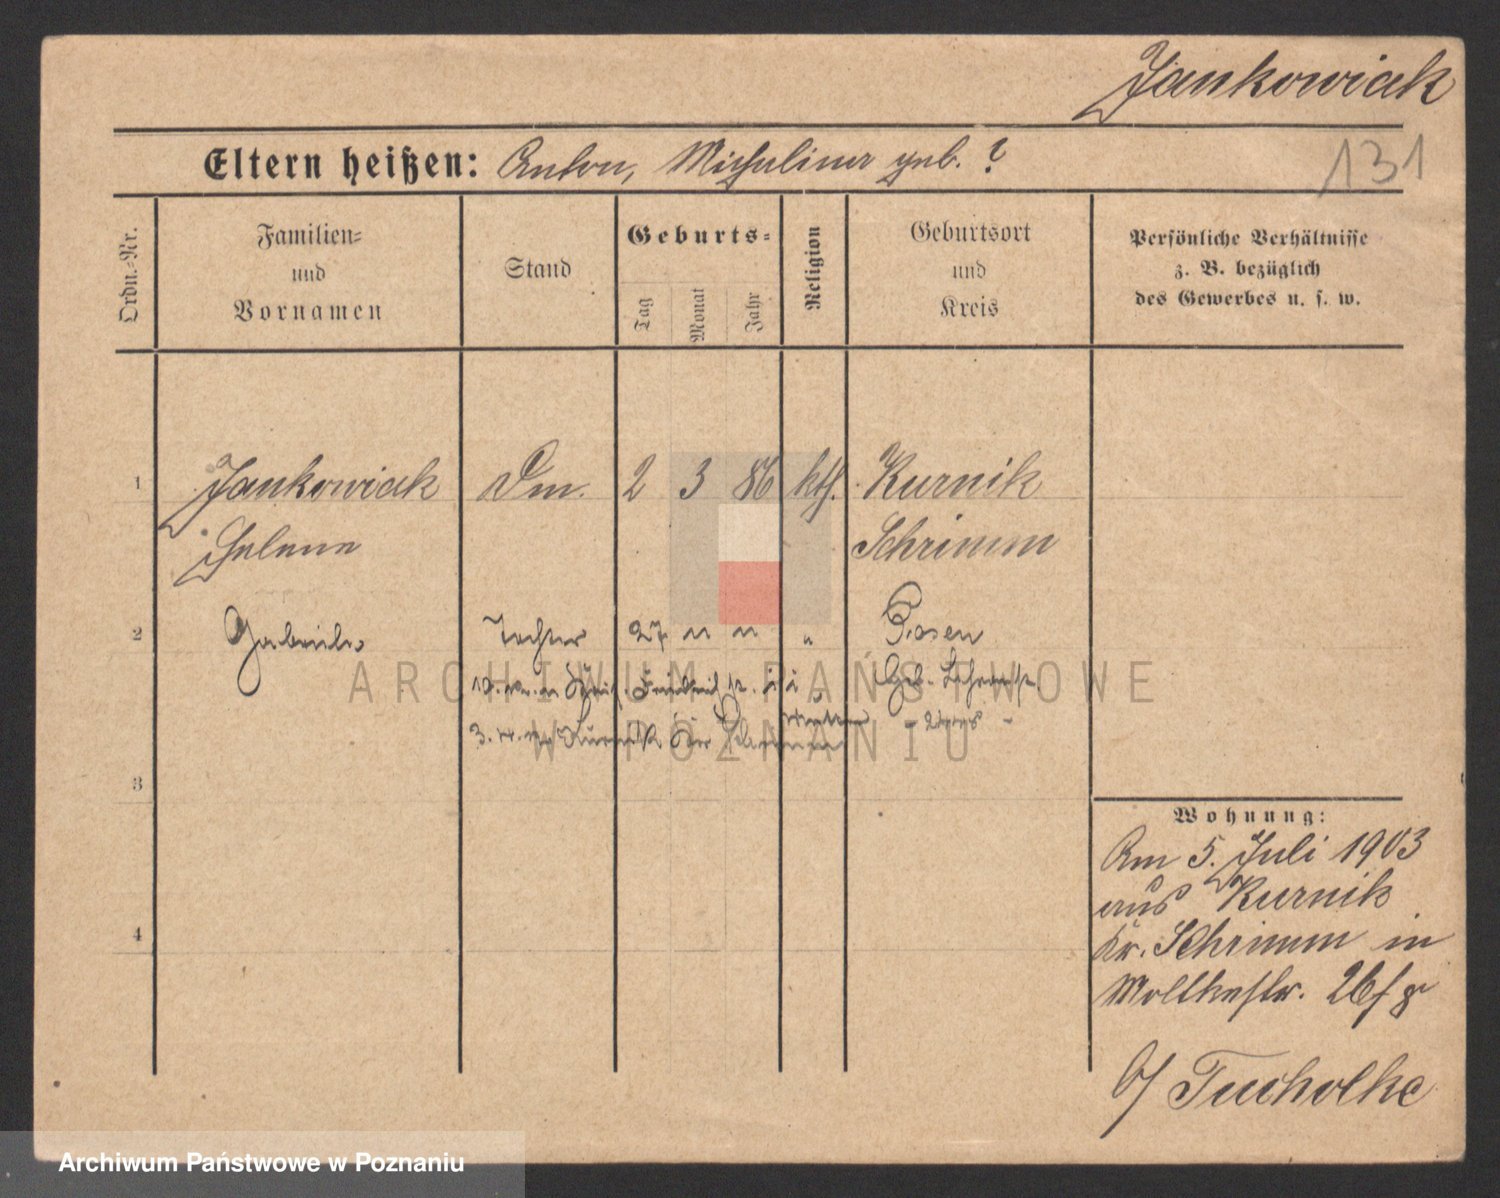 Jankowiak
Eltern heißen: Anton, Michalina geb. ?
131
Ordn.-Nr.
Familien-
und
Vornamen
Stand
Geburts-
Tag
Monat
Jahr
Religion
Geburtsort
und
Kreis
Persönliche Verhältnisse
z. B. bezüglich
des Gewerbes u. s. w.
1 Jankowiak Dm. 2 3 86 kth. Kurnik
Helene Schrimm
2 Tochter 27 " " " Posen
3
4
Wohnung:
Am 5. Juli 1903
aus Kurnik
Kr. Schrimm in
Moltkestr. 26
b/ Tucholke
ARCHIWUM PAŃSTWOWE
W POZNANIU
Archiwum Państwowe w Poznaniu